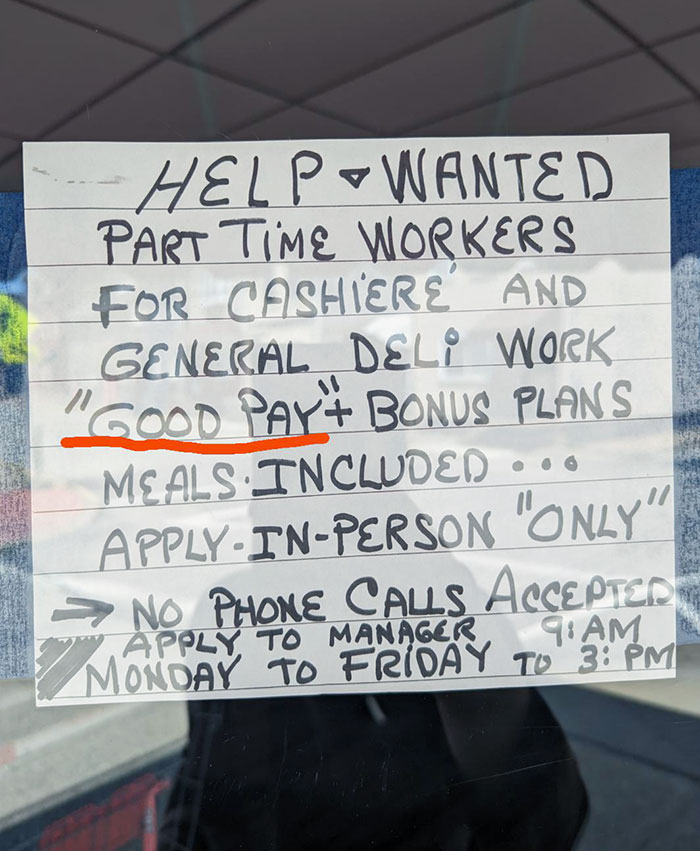 HELP WANTED
PART TIME WORKERS
FOR CASHIERE' AND
GENERAL DELI WORK
"GOOD PAY"+ BONUS PLANS
MEALS·INCLUDED...
APPLY-IN-PERSON "ONLY"
→ NO PHONE CALLS ACCEPTED
APPLY TO MANAGER 9:AM
MONDAY TO FRIDAY TO 3:PM